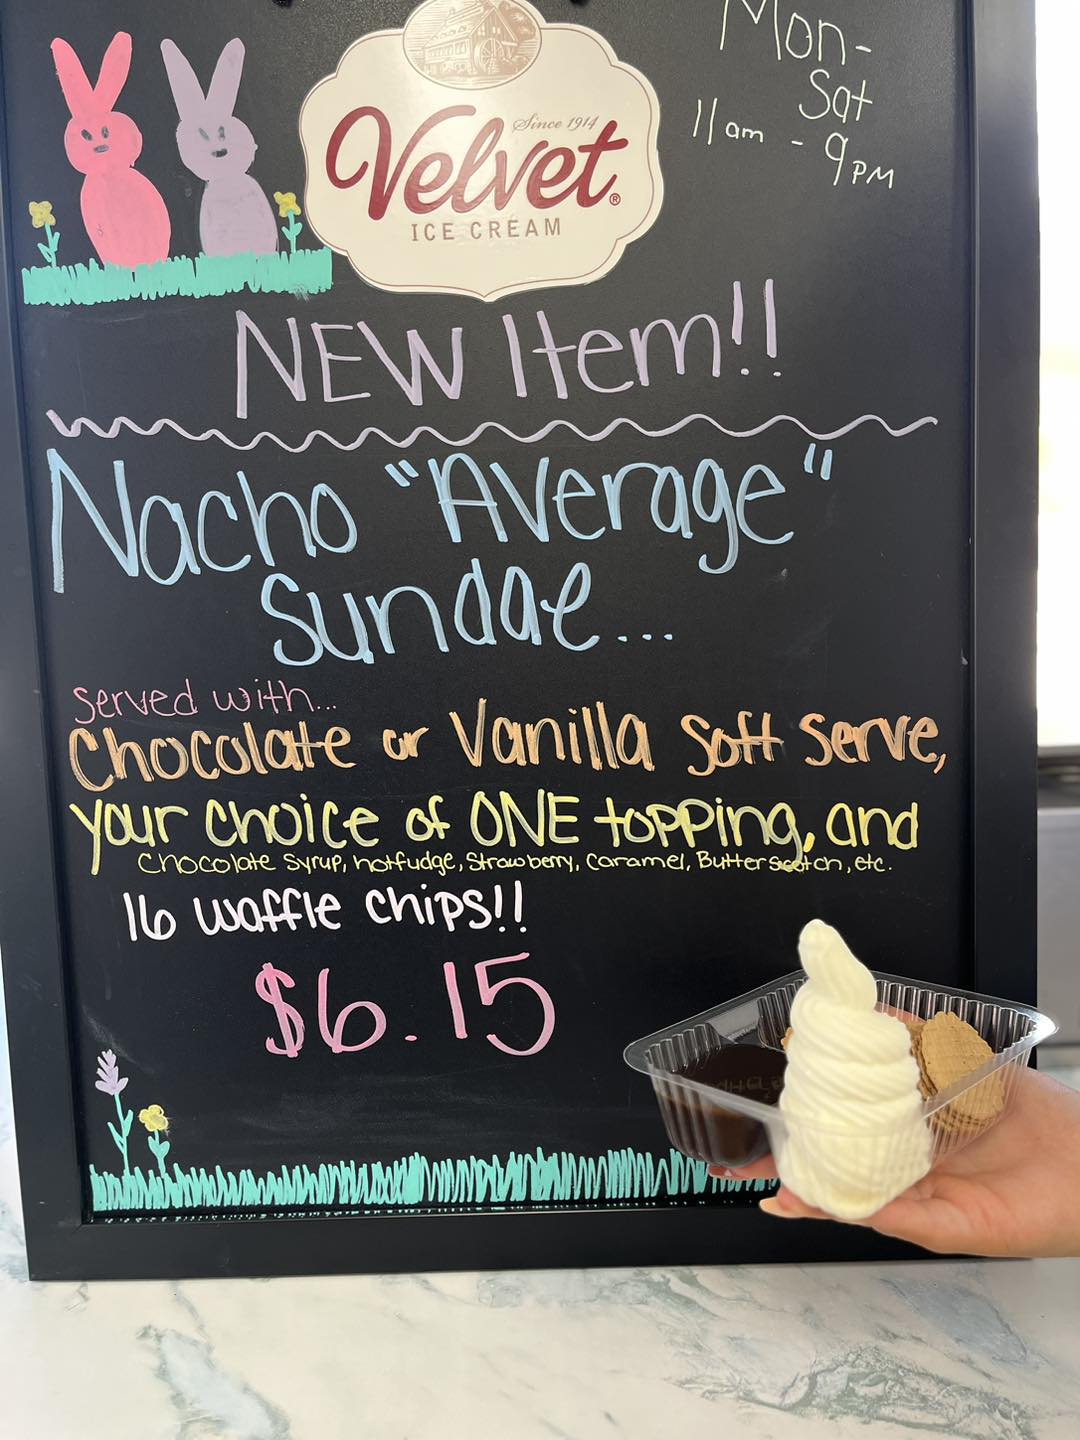 Mon-
Sat
11am - 9PM
Since 1914
Velvet®
ICE CREAM
NEW Item!!
Nacho "Average"
Sundae...
served with...
Chocolate or Vanilla Soft Serve,
your choice of ONE topping, and
Chocolate Syrup, hotfudge, Strawberry, Caramel, Butterscotch, etc.
16 waffle chips!!
$6.15